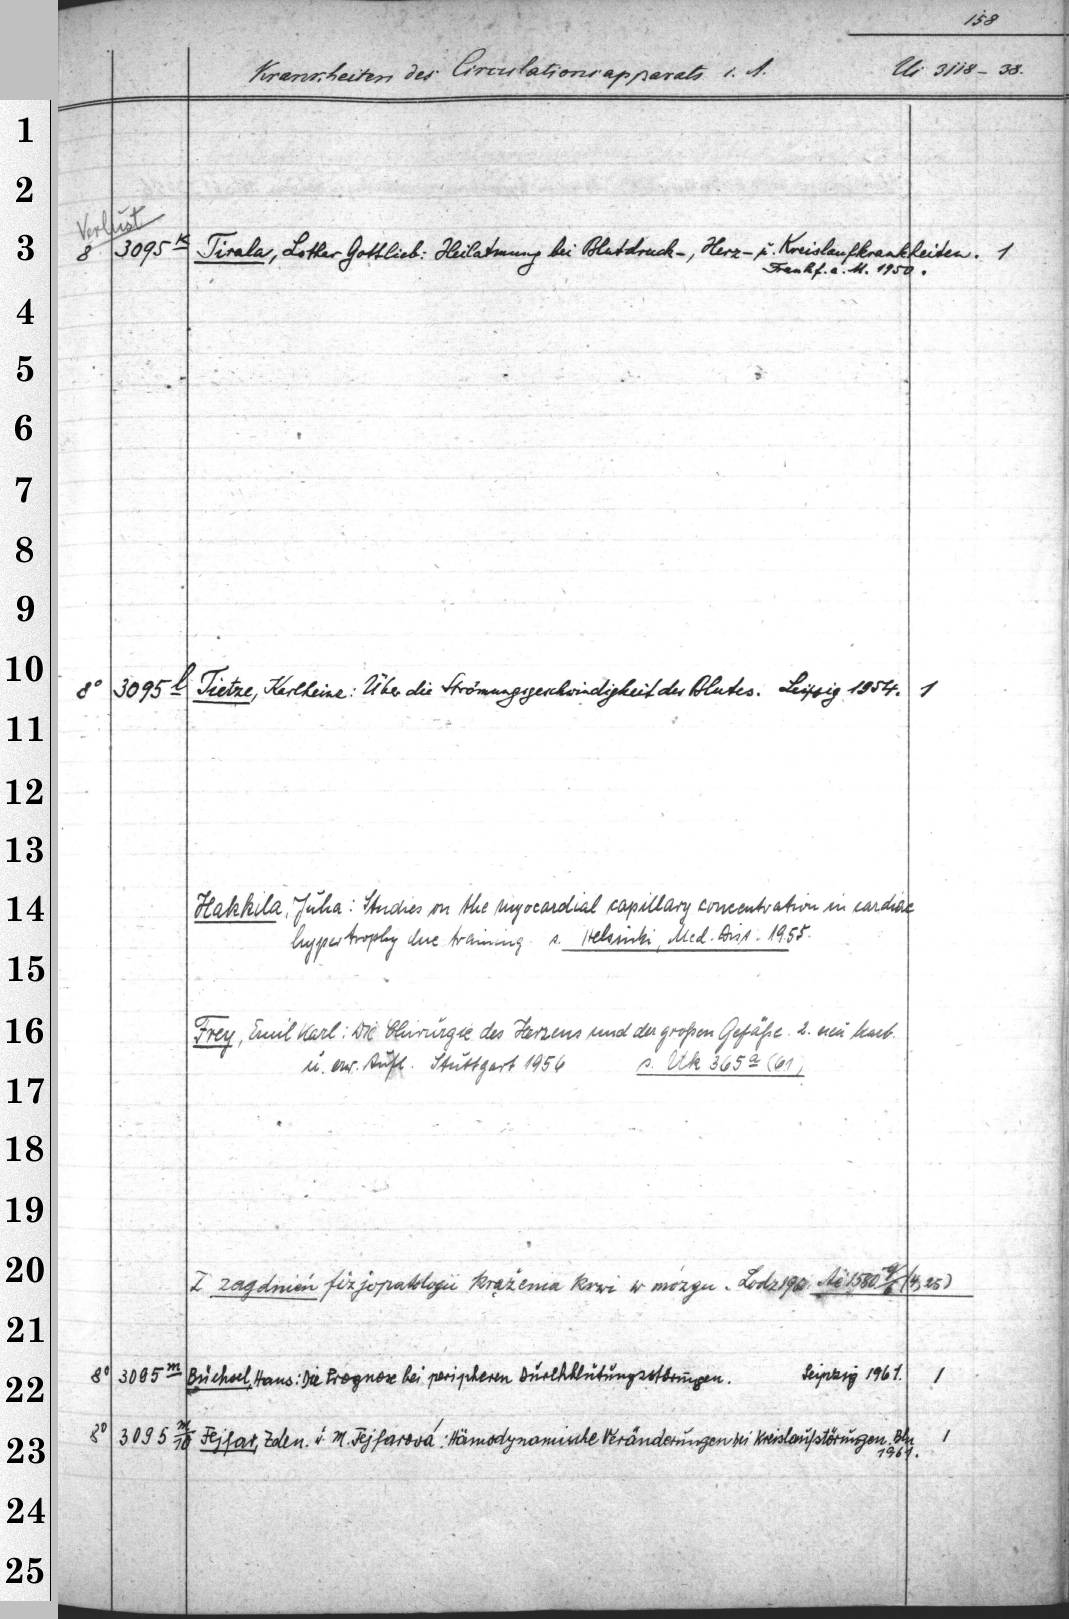 158
Krankheiten des Circulationsapparats i. A. Ui 3118-38.
1
2
Verlust
3 8 3095 k Tirala, Lothar Gottlieb: Heilatmung bei Blutdruck-, Herz- u. Kreislaufkrankheiten. 1
Frankf. a. M. 1950.
4
5
6
7
8
9
10 8° 3095 l Tietze, Karlheinz: Über die Strömungsgeschwindigkeit des Blutes. Leipzig 1954. 1
11
12
13
14 Hakkila, Juha: Studies on the myocardial capillary concentration in cardiac
hypertrophy due training. s. Helsinki, Med. Diss. 1955.
15
16 Frey, Emil Karl: Die Chirurgie des Herzens und der großen Gefäße. 2. neu bearb.
u. erw. Aufl. Stuttgart 1956 s. Uk 365 a (61)
17
18
19
20 Z zagdnień fizjopatologii krążenia krwi w mózgu. Lodz (4,25)
21
22 8° 3095 m Büchsel, Hans: Die Prognose bei peripheren Durchblutungsstörungen. Leipzig 1961. 1
23 8° 3095 m/10 Fejfar, Zden. u. M. Fejfarová: Hämodynamische Veränderungen bei Kreislaufstörungen. Bln
1961. 1
24
25